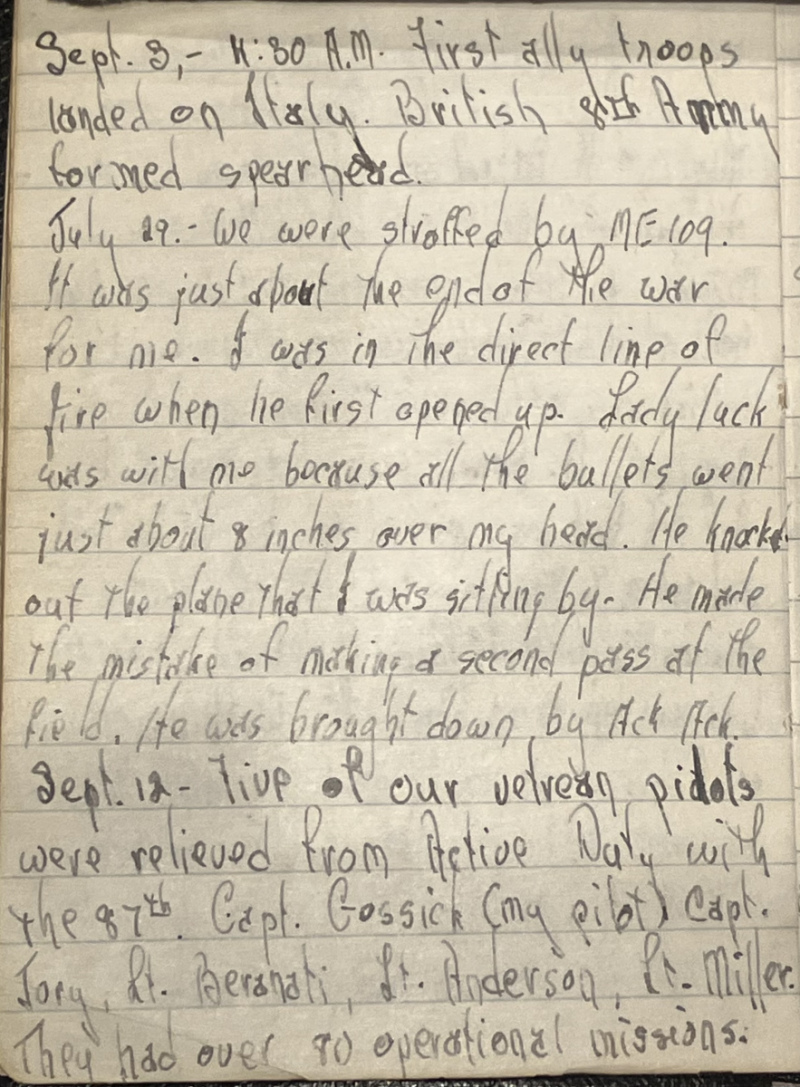 Sept. 3,- 4:30 A.M. First ally troops
landed on Italy. British 8th Army
formed spearhead.
July 29.- We were straffed by ME 109.
It was just about the end of the war
for me. I was in the direct line of
fire when he first opened up. Lady luck
was with me because all the bullets went
just about 8 inches over my head. He knocked
out the plane that I was sitting by- He made
the mistake of making a second pass at the
field. He was brought down by Ack Ack.
Sept. 12- Five of our vetrean pilots
were relieved from Active Duty with
the 87th. Capt. Gossick (my pilot) Capt.
Jory, Lt. Beranati, Lt. Anderson, Lt. Miller.
They had over 80 operational missions.